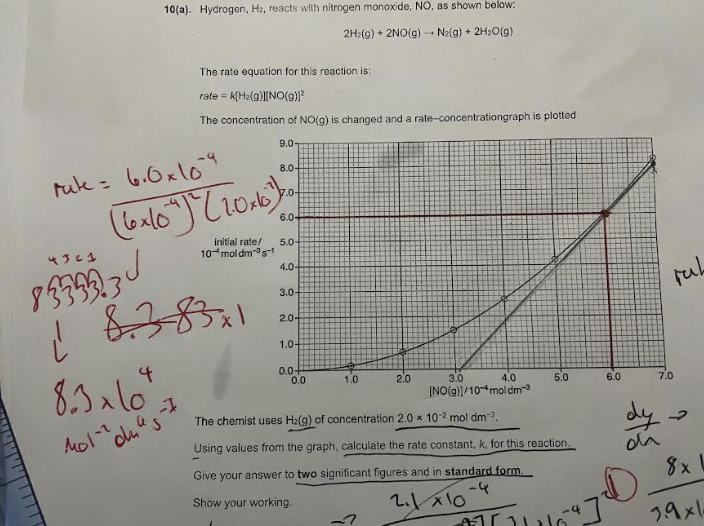 10(a). Hydrogen, H₂, reacts with nitrogen monoxide, NO, as shown below:
2H₂(g) + 2NO(g) → N₂(g) + 2H₂O(g)
The rate equation for this reaction is:
rate = k[H₂(g)][NO(g)]²
The concentration of NO(g) is changed and a rate–concentrationgraph is plotted.
9.0
8.0
7.0
6.0
5.0
4.0
3.0
2.0
1.0
0.0
initial rate/
10⁻⁴ mol dm⁻³ s⁻¹
0.0 1.0 2.0 3.0 4.0 5.0 6.0 7.0
[NO(g)]/10⁻⁴ mol dm⁻³
rate = 6.0 x 10⁻⁴
(6x10⁻⁴)² (2.0x10⁻²)
4 3 2 1
83333.3
8.3 83 x 1
8.3 x 10⁴
mol⁻² dm⁶ s⁻¹
The chemist uses H₂(g) of concentration 2.0 × 10⁻² mol dm⁻³.
Using values from the graph, calculate the rate constant, k, for this reaction.
Give your answer to two significant figures and in standard form.
Show your working.
2.1 x 10⁻⁴
dy
dx
→
8 x 1
3.9 x 1